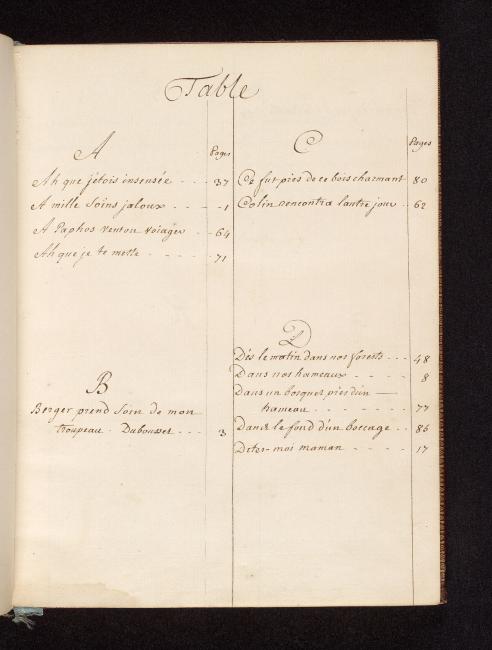 Table
A
Pages
Ah que j'etois insensée - - - 37
A mille Soins jaloux - - - 1
A Paphos veux tu voiager - - 64
Ah que je te mette - - - - 71
B
Berger prend Soin de mon
troupeau. Dubousset - - - 3
C
Pages
Ce fut près de ce bois charmant 80
Colin rencontra l'autre jour - - 62
D
Dès le matin dans nos forests - - - 48
Dans nos hameaux - - - - 8
Dans un bosquet près d'un
hameau - - - - - - 77
Dans le fond d'un boccage - - 86
Dites-moi maman - - - - 17